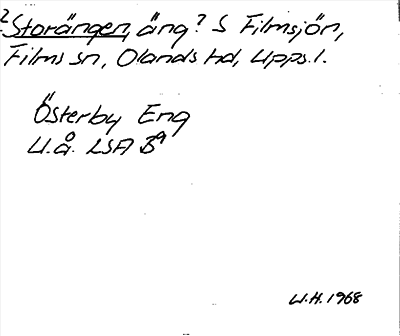 ? Storängen, äng? S Filmsjön,
Films sn, Olands hd, Upps.l.
Österby Eng
U.å. LSA B⁹
W.H. 1968